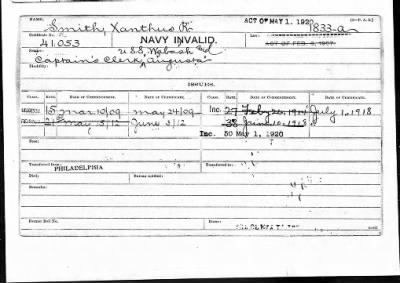 NAME:
Smith, Xanthus R. ACT OF MAY 1, 1920 1833-a
Certificate No. 41.053 NAVY INVALID. ACT OF FEB. 6, 1907.
U.S.S. Wabash and
Captain's Clerk, Augusta
Disability:
ISSUES.
CLASS. RATE. DATE OF COMMENCEMENT. DATE OF CERTIFICATE. CLASS. RATE. DATE OF COMMENCEMENT. DATE OF CERTIFICATE.
15 Mar 10/09 May 24/09 Inc. 27 July 1, 1918
21 May 3/12 June 3/12 38 June 10, 1918
Inc. 50 May 1, 1920
Fees:
Transferred from
PHILADELPHIA
Died:
Remarks:
Former Roll No. Home: